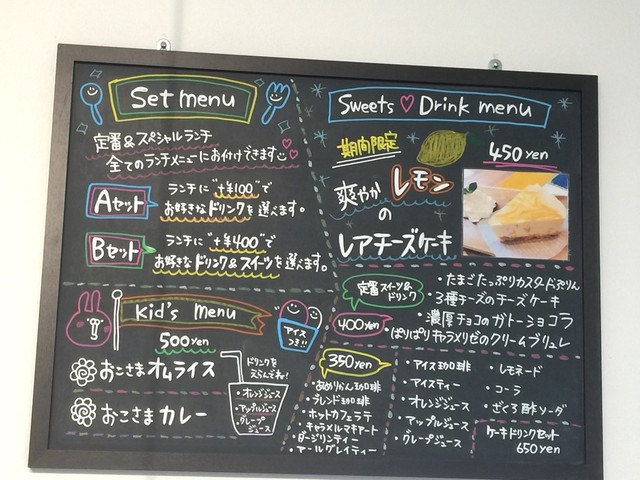 Set menu
定番&スペシャルランチ
全てのランチメニューにお付けできます
Aセット
ランチに"+¥100"で
お好きなドリンクを選べます。
Bセット
ランチに"+¥400"で
お好きなドリンク&スイーツを選べます。
Kid's menu
500yen
アイス
つき!!
おこさまオムライス
おこさまカレー
ドリンクを
えらんでね!
・オレンジジュース
・アップルジュース
・グレープ
ジュース
Sweets ♡ Drink menu
期間限定
450yen
爽やか
の
レモン
レアチーズケーキ
定番スイーツ&
ドリンク
400yen
・たまごたっぷりカスタードぷりん
・3種チーズのチーズケーキ
・濃厚チョコのガトーショコラ
・ぱりぱりキャラメリゼのクリームブリュレ
350yen
・あめりかん珈琲
・ブレンド珈琲
・ホットカフェラテ
・キャラメルマキアート
・ダージリンティー
・アールグレイティー
・アイス珈琲
・アイスティー
・オレンジジュース
・アップルジュース
・グレープジュース
・レモネード
・コーラ
・ざくろ酢ソーダ
ケーキドリンクセット
650yen